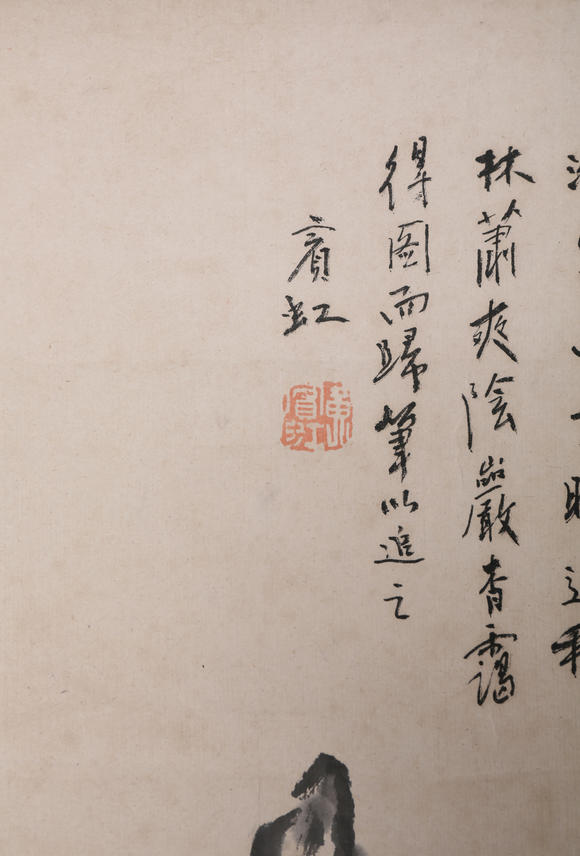 林蕭爽陰巖杳靄
得圖而歸筆以追之
賓虹